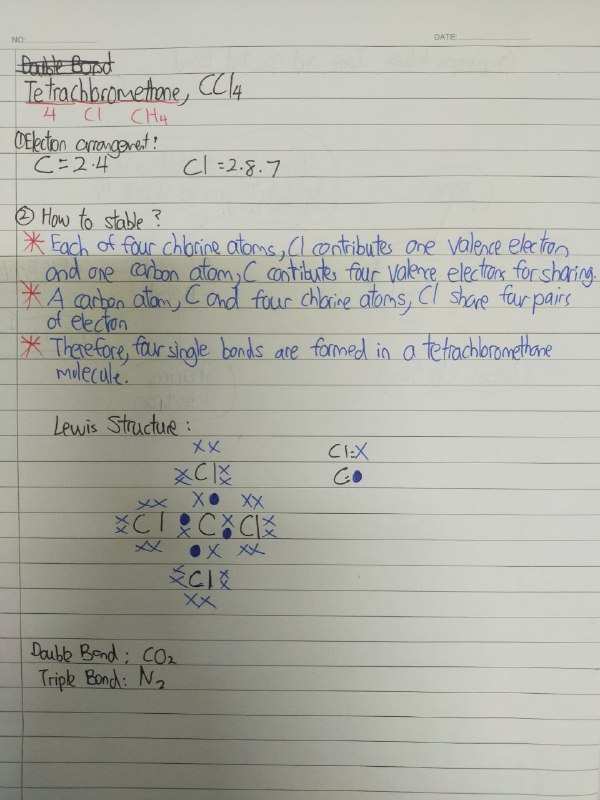 NO:
DATE:
Double Bond
Tetrachloromethane, CCl4
4 Cl CH4
① Electron arrangement:
C = 2.4 Cl = 2.8.7
② How to stable?
* Each of four chlorine atoms, Cl contributes one valence electron
and one carbon atom, C contibutes four valence electrons for sharing.
* A carbon atom, C and four chlorine atoms, Cl share four pairs
of electron
* Therefore, four single bonds are formed in a tetrachloromethane
molecule.
Lewis Structure:
xx
xx Cl xx Cl=x
C=●
x● 
xx xx
xx Cl ●x C x● Cl xx
xx ●x xx
xx Cl xx
xx
Double Bond: CO2
Triple Bond: N2